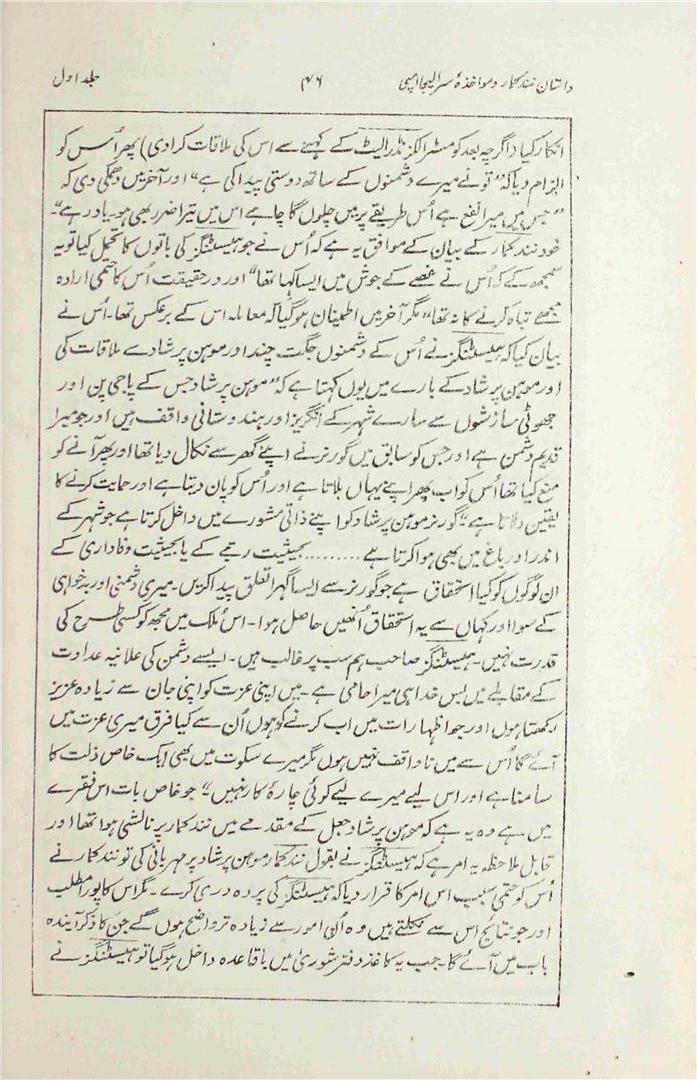 داستان نندکمار و مواخذۂ سر الیجا امپی ۴۶ جلد اول
انکار کیا (اگرچہ بعد کو مسٹر الکزنڈر الیٹ کے کہنے سے اس کی ملاقات کرادی) پھر اُس کو
الزام دیا کہ "تو نے میرے دشمنوں کے ساتھ دوستی پیدا کی ہے" اور آخر میں دھمکی دی کہ
"جس میں میرا نفع ہے اُس طریقے پر میں چلوں گا چاہے اس میں تیرا ضرر بھی ہو۔ یاد رہے"۔
خود نندکمار کے بیان کے موافق یہ ہے کہ اُس نے جو ہیسٹنگز کی باتوں کا تخیل کیا تو یہ
سمجھ کے کہ اُس نے غصے کے جوش میں ایسا کہا تھا" اور درحقیقت اُس کا حتمی ارادہ
مجھے تباہ کرنے کا نہ تھا" مگر آخر میں اطمینان ہوگیا کہ معاملہ اس کے برعکس تھا۔ اُس نے
بیان کیا کہ ہیسٹنگز نے اُس کے دشمنوں جگت چند اور موہن پرشاد سے ملاقات کی
اور موہن پرشاد کے بارے میں یوں کہتا ہے کہ "موہن پرشاد جس کے پاجی پن اور
جھوٹی سازشوں سے سارے شہر کے انگریز اور ہندوستانی واقف ہیں اور جو میرا
قدیم دشمن ہے اور جس کو سابق میں گورنر نے اپنے گھر سے نکال دیا تھا اور پھر آنے کو
منع کیا تھا اُس کو اب پھر اپنے یہاں بلاتا ہے اور اُس کو پان دیتا ہے اور حمایت کرنے کا
یقین دلاتا ہے" گورنر موہن پرشاد کو اپنے ذاتی مشورے میں داخل کرتا ہے جو شہر کے
اندر اور باغ میں بھی ہوا کرتا ہے ......... بحیثیت رتبے کے یا بحیثیت وفاداری کے
ان لوگوں کو کیا استحقاق ہے جو گورنر سے ایسا گہرا تعلق پیدا کریں۔ میری دشمنی اور بدخواہی
کے سوا اور کہاں سے یہ استحقاق اُنھیں حاصل ہوا۔ اس مُلک میں مجھ کو کسی طرح کی
قدرت نہیں۔ ہیسٹنگز صاحب ہم سب پر غالب ہیں۔ ایسے دشمن کی علانیہ عداوت
کے مقابلے میں بس خدا ہی میرا حامی ہے۔ میں اپنی عزت کو اپنی جان سے زیادہ عزیز
رکھتا ہوں اور جو اظہارات میں اب کرنے کو ہوں اُن سے کیا فرق میری عزت میں
آئے گا اُس سے میں ناواقف نہیں ہوں مگر میرے سکوت میں بھی ایک خاص ذلت کا
سامنا ہے اور اس لیے میرے لیے کوئی چارۂ کار نہیں" جو خاص بات اس فقرے
میں ہے وہ یہ ہے کہ موہن پرشاد جعل کے مقدمے میں نندکمار پر نالشی ہوا تھا اور
قابل ملاحظہ یہ امر ہے کہ ہیسٹنگز نے بقول نندکمار موہن پرشاد پر مہربانی کی تو نندکمار نے
اُس کو حتمی سبب اس امر کا قرار دیا کہ ہیسٹنگز کی پردہ دری کرے۔ مگر اس کا پورا مطلب
اور جو نتائج اس سے نکلتے ہیں وہ اُن امور سے زیادہ تر واضح ہوں گے جن کا ذکر آیندہ
باب میں آئے گا۔ جب یہ کاغذ دفتر شوریٰ میں باقاعدہ داخل ہوگیا تو ہیسٹنگز نے